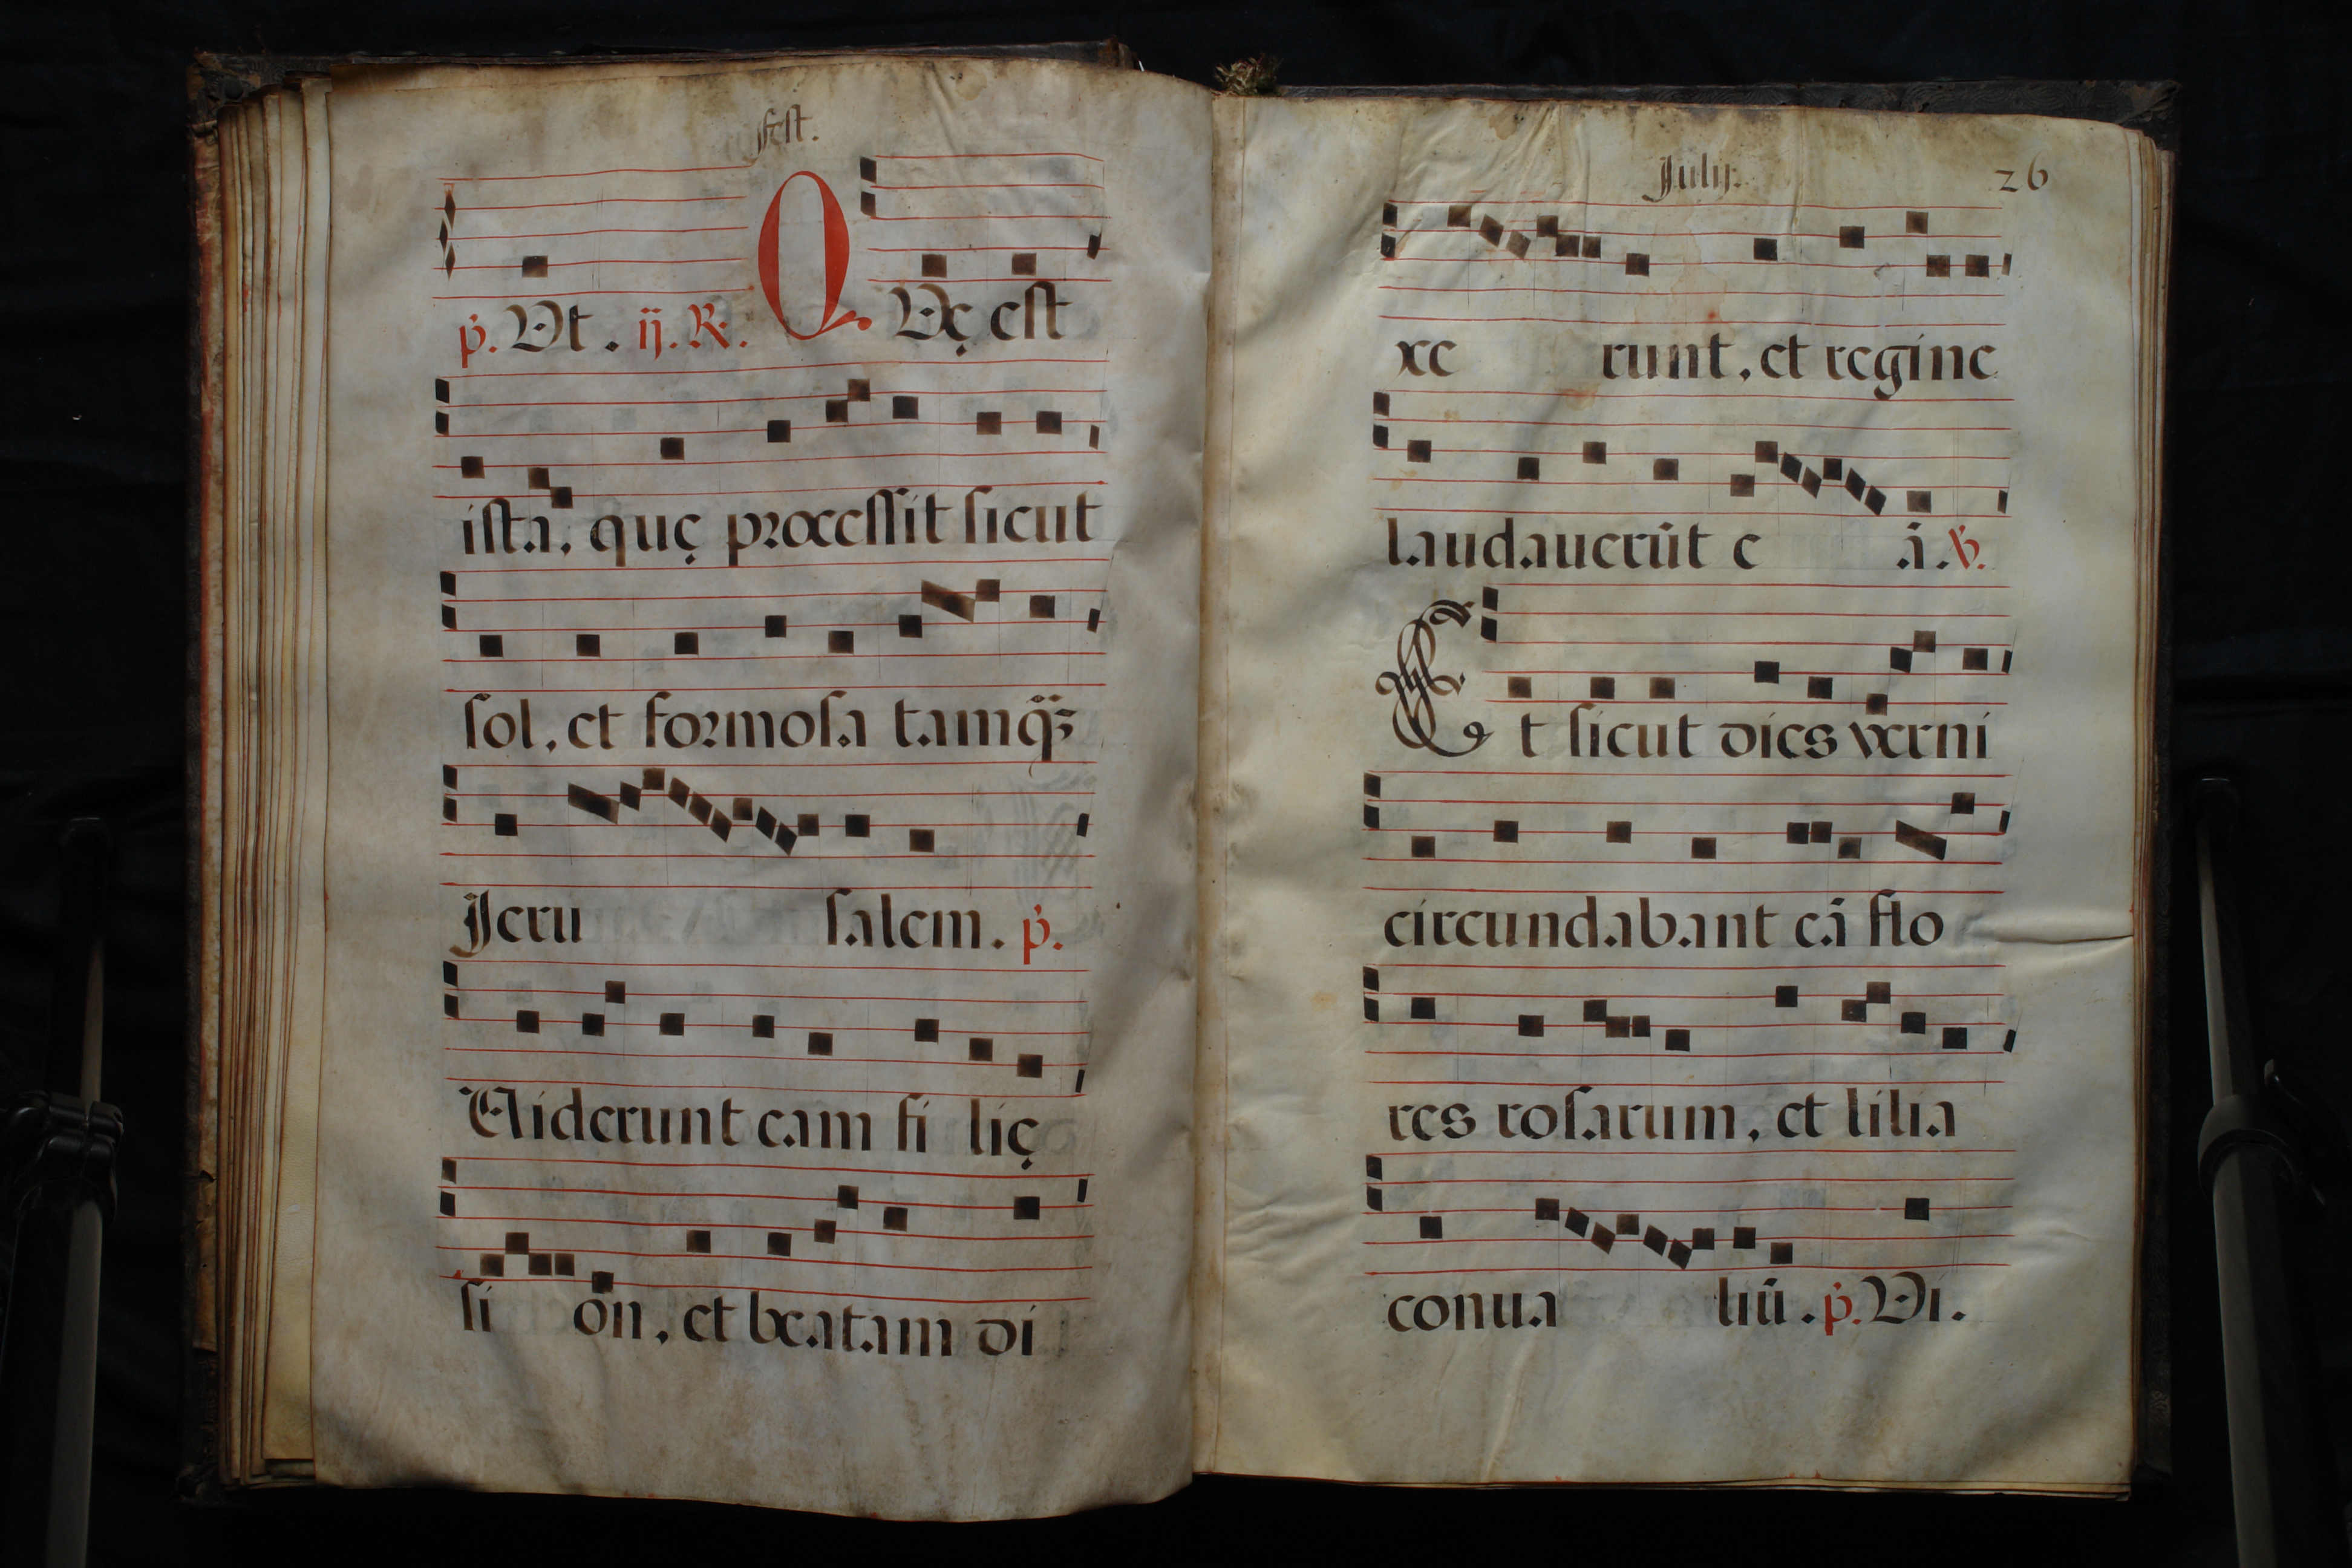 fest.
p̃. Vt. ij. R.
QVę est
ista, quę processit sicut
sol, et formosa tamq̃ȝ
Jeru salem. p̃.
Viderunt eam fi lię
si on, et beatam di
July. 26
xe runt, et regine
laudauerūt e ā. v̄.
Et sicut dies verni
circundabant eā flo
res rosarum, et lilia
conua liū. p̃. Vi.